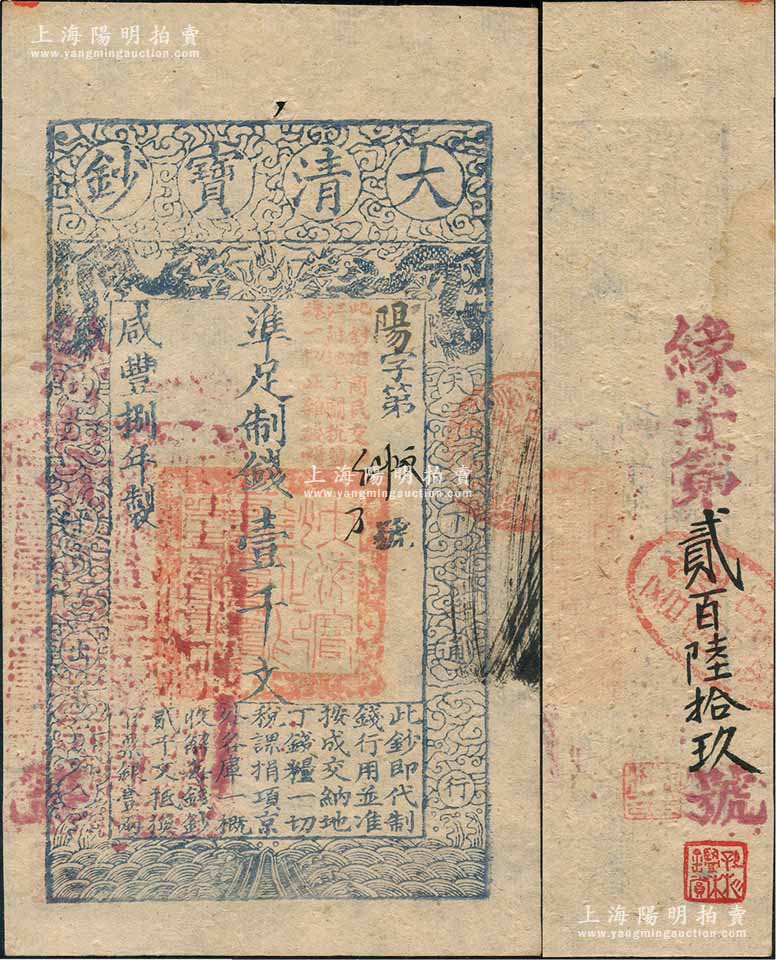 上海陽明拍賣
www.yangmingauction.com
大清寶鈔
陽字第
號
準足制錢壹千文
咸豐捌年製
天下通行
此鈔即代制
錢行用並准
按成交納地
丁錢糧一切
稅課捐項京
外各庫一概
收解每錢鈔
貳千文抵換
官票銀壹兩
緣字第
貳百陸拾玖
號
上海陽明拍賣
www.yangmingauction.com
上海陽明拍賣
www.yangmingauction.com